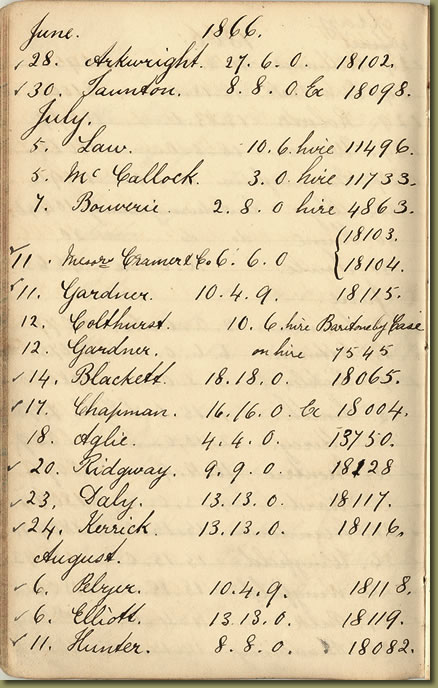 June. 1866.
28. Arkwright. 27. 6. 0. 18102.
30. Taunton. 8. 8. 0. Ex 18098.
July.
5. Law. 10. 6. hire 11496.
5. Mc Callock. 3. 0. hire 11733.
7. Bouverie. 2. 8. 0 hire 4863.
18103.
11. Messrs Cramer & Co 6. 6. 0 18104.
11. Gardner. 10. 4. 9. 18115.
12. Colthurst. 10. 6. hire Baritone by Case
12. Gardner. on hire 7545
14. Blackett. 18. 18. 0. 18065.
17. Chapman. 16. 16. 0. Ex 18004.
18. Aglie. 4. 4. 0. 13750.
20. Ridgway. 9. 9. 0. 18128
23. Daly. 13. 13. 0. 18117.
24. Kerrick. 13. 13. 0. 18116.
August.
6. 10. 4. 9. 18118.
6. Elliott. 13. 13. 0. 18119.
11. Hunter. 8. 8. 0. 18082.